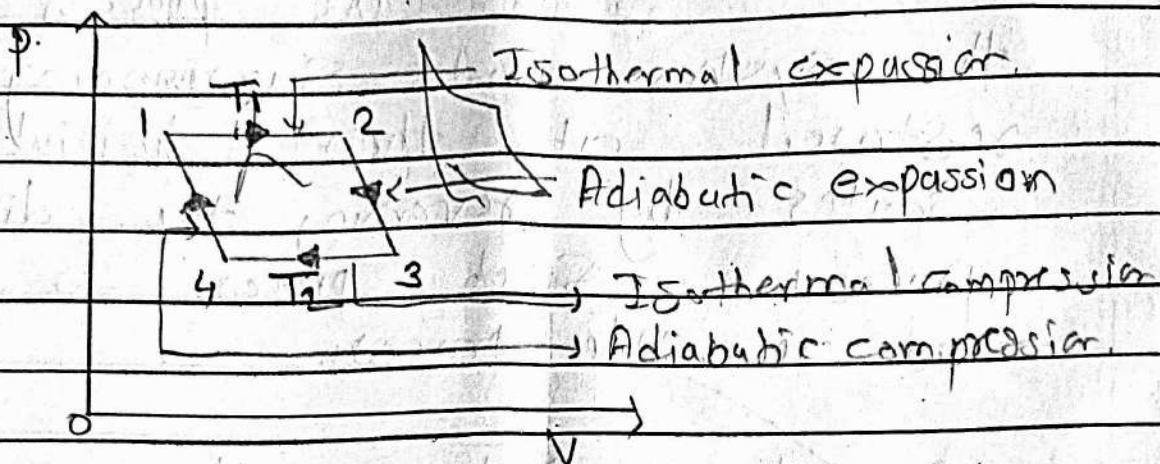 P.
Isothermal expassion.
T1
1 2
Adiabatic expassion
4 T2 3
Isothermal compression
Adiabatic compression.
O
V